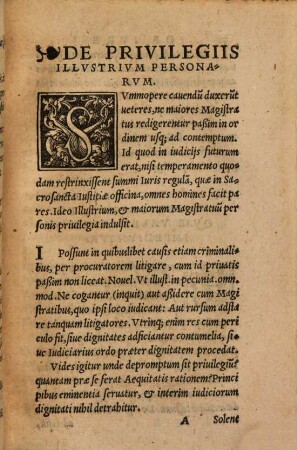 DE PRIVILEGIIS
ILLVSTRIVM PERSONA-
RVM.
SVmmopere cauendũ duxerũt
ueteres, ne maiores Magistra
tus redigerentur paßim in or
dinem usq; ad contemptum.
Id quod in iudicijs futurum
erat, nisi temperamento quo-
dam restrinxissent summi Iuris regulã, quæ in Sa-
crosancta Iustitiæ officina, omnes homines facit pa
res. Ideo Illustrium, & maiorum Magistratuũ per
sonis priuilegia indulsit.
I Possunt in quibuslibet causis etiam criminali-
bus, per procuratorem litigare, cum id priuatis
paßim non liceat. Nouel. Vt illust. in pecunia. omn.
mod. Ne cogantur (inquit) aut aßidere cum Magi
stratibus, quo ipsi loco iudicant: Aut rursum adsta
re tanquam litigatores. Vtrinq; enim res cum peri
culo sit, siue dignitates adficiantur contumelia, si-
ue Iudiciarius ordo præter dignitatem procedat.
Vides igitur unde depromptum sit priuilegiũ?
quantam præ se ferat Aequitatis rationem? Princi
pibus eminentia seruatur, & interim iudiciorum
dignitati nihil detrahitur.
A Solent